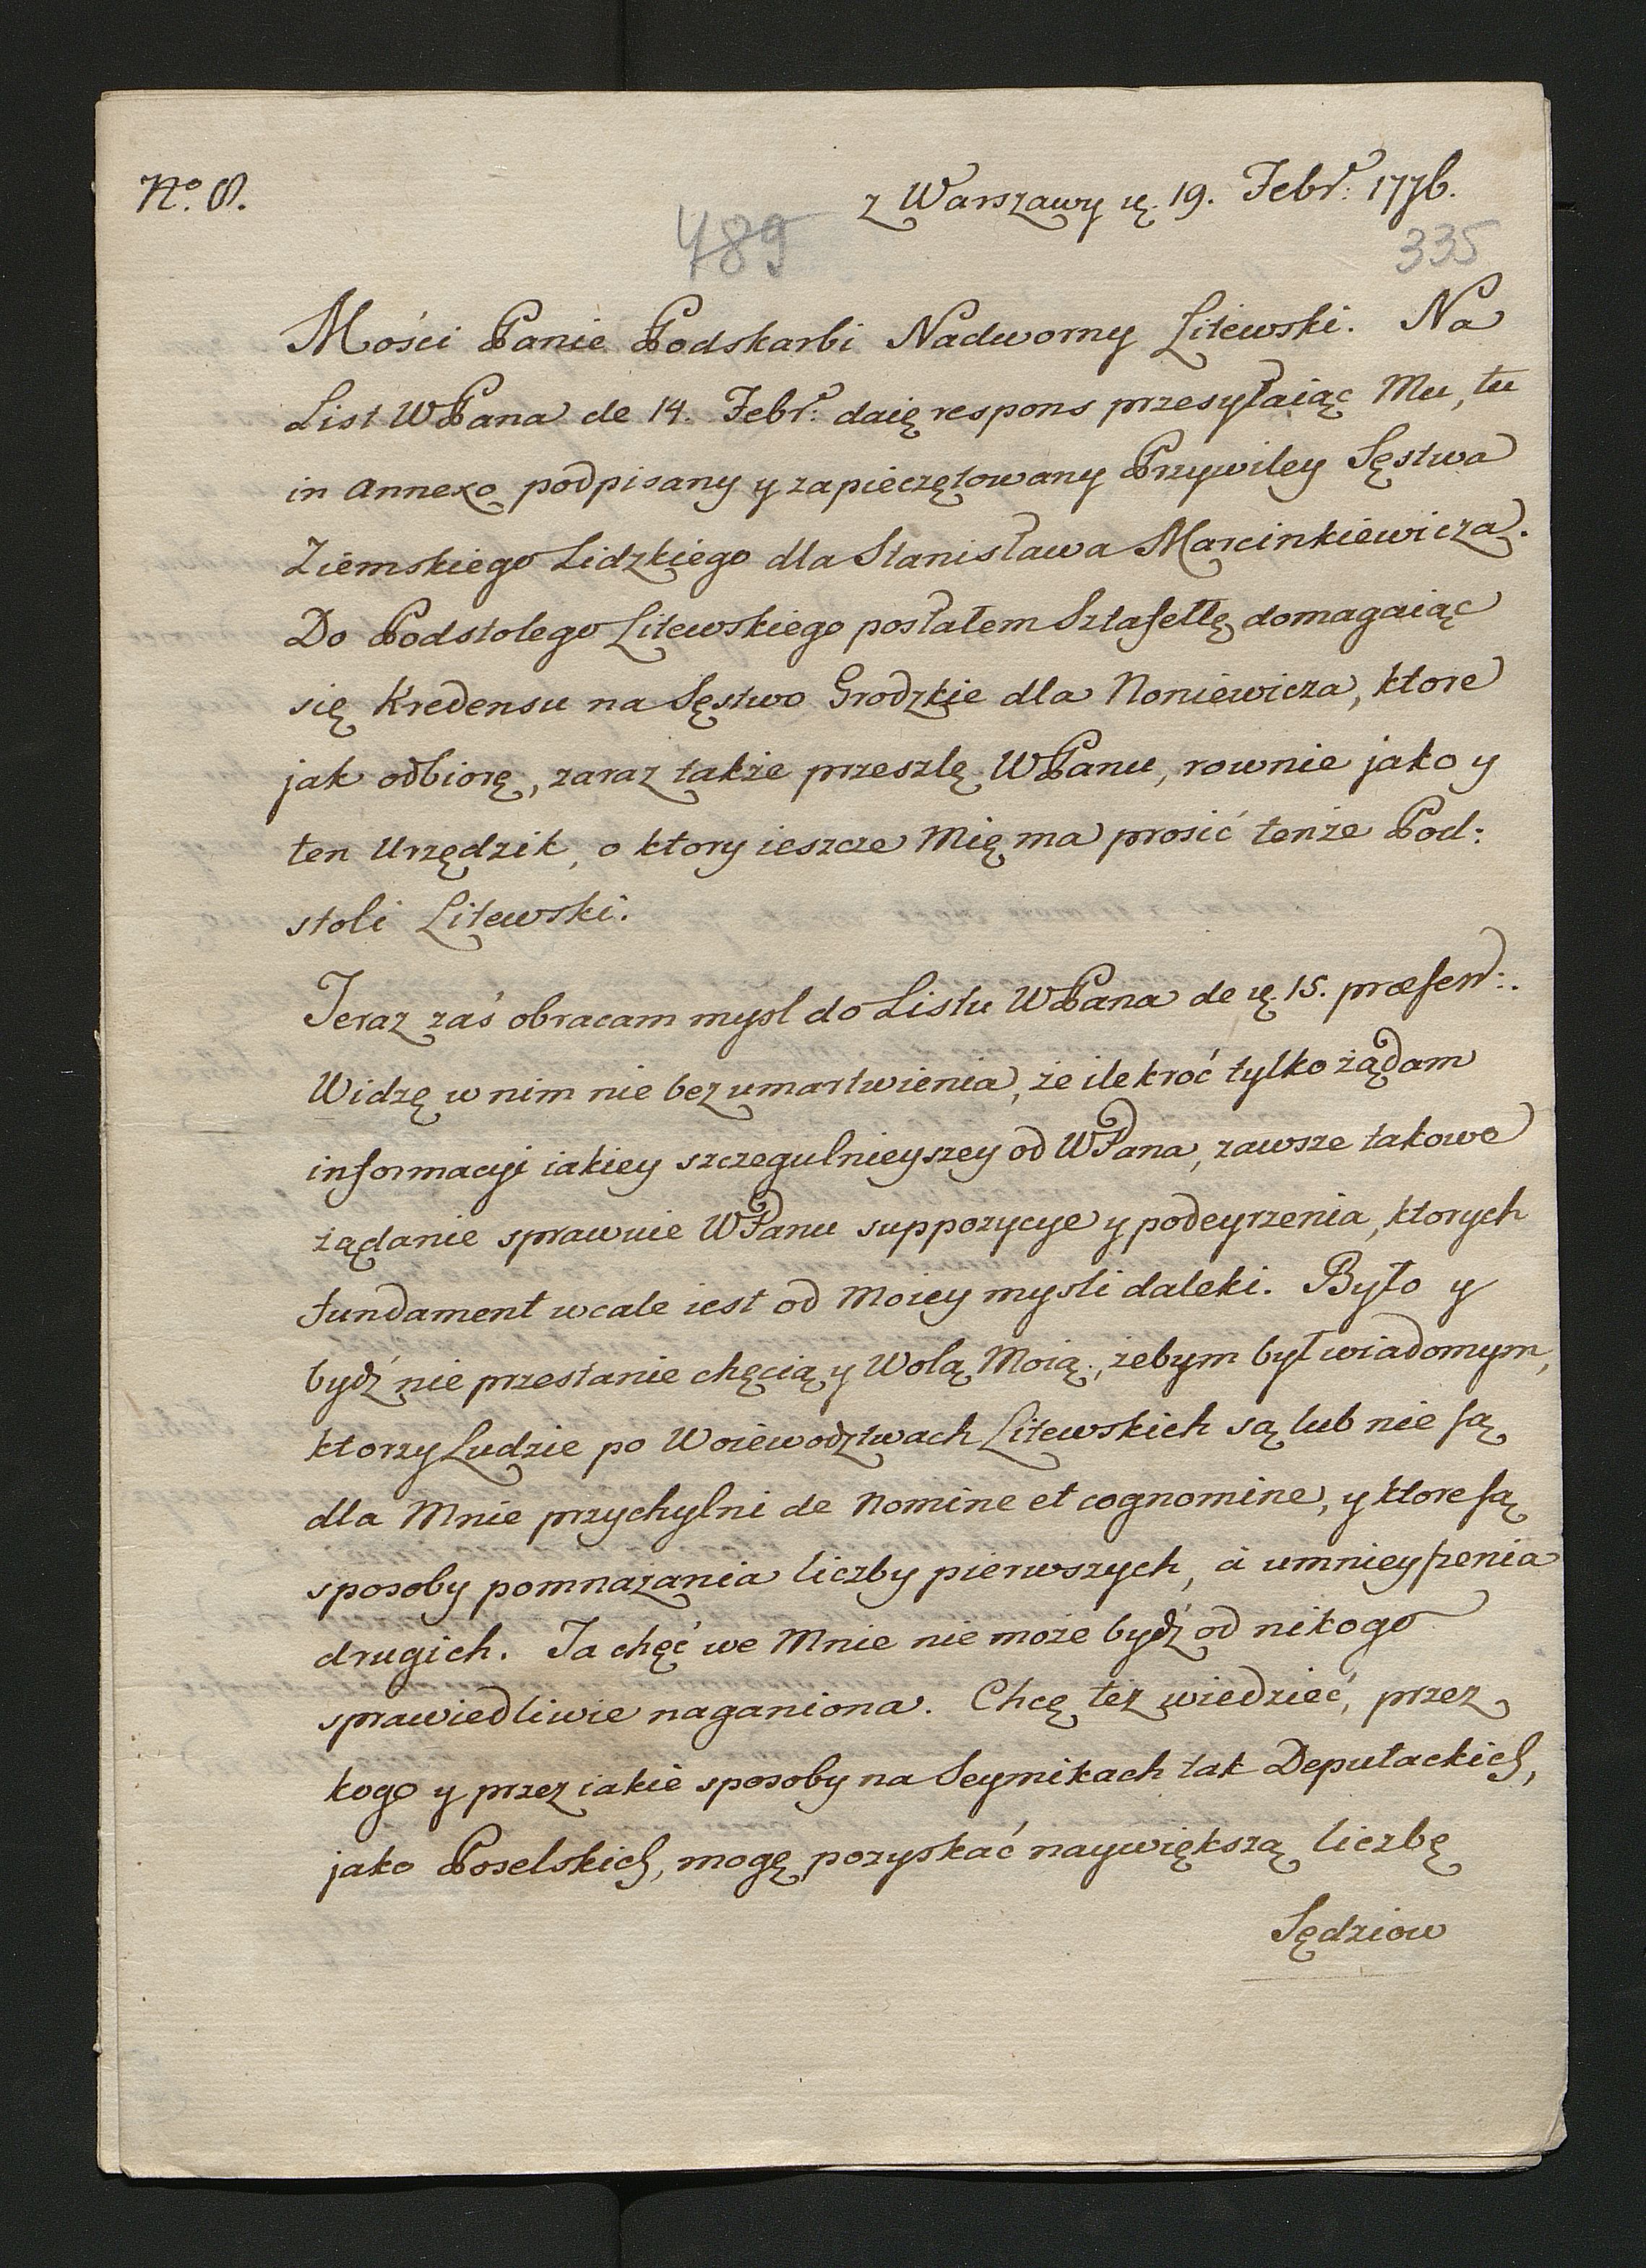 No. 8.
z Warszawy d. 19. Febr: 1776.
489
335
Mości Panie Podskarbi Nadworny Litewski. Na
List WPana de 14. Febr: daię respons przesyłaiąc Mu, tu
in Annexo podpisany y zapieczętowany Przywiley Sęstwa
Ziemskiego Lidzkiego dla Stanisława Marcinkiewicza.
Do Podstolego Litewskiego posłałem Sztafettę domagaiąc
się Kredensu na Sęstwo Grodzkie dla Noniewicza, ktore
jak odbiorę, zaraz także przeszlę WPanu, rownie jako y
ten Urzędzik, o ktory ieszcze Mię ma prosić tenże Pod:
stoli Litewski.
Teraz zaś obracam mysl do Listu WPana de d. 15. præsen:.
Widzę w nim nie bez umartwienia, że ilekroć tylko żądam
informacyi iakiey szczegulnieyszey od WPana, zawsze takowe
żądanie sprawuie WPanu suppozycye y podeyrzenia, ktorych
fundament wcale iest od Moiey mysli daleki. Było y
bydź nie przestanie chęcią y Wolą Moią, żebym był wiadomym,
ktorzy Ludzie po Woiewodztwach Litewskich są lub nie są
dla Mnie przychylni de Nomine et cognomine, y ktore są
sposoby pomnażania liczby pierwszych, à umnieyszenia
drugich. Ta chęć we Mnie nie może bydź od nikogo
sprawiedliwie naganiona. Chcę też wiedzieć, przez
kogo y przez iakie sposoby na Seymikach tak Deputackich,
jako Poselskich, mogę pozyskać naywiększą liczbę
Sędziow